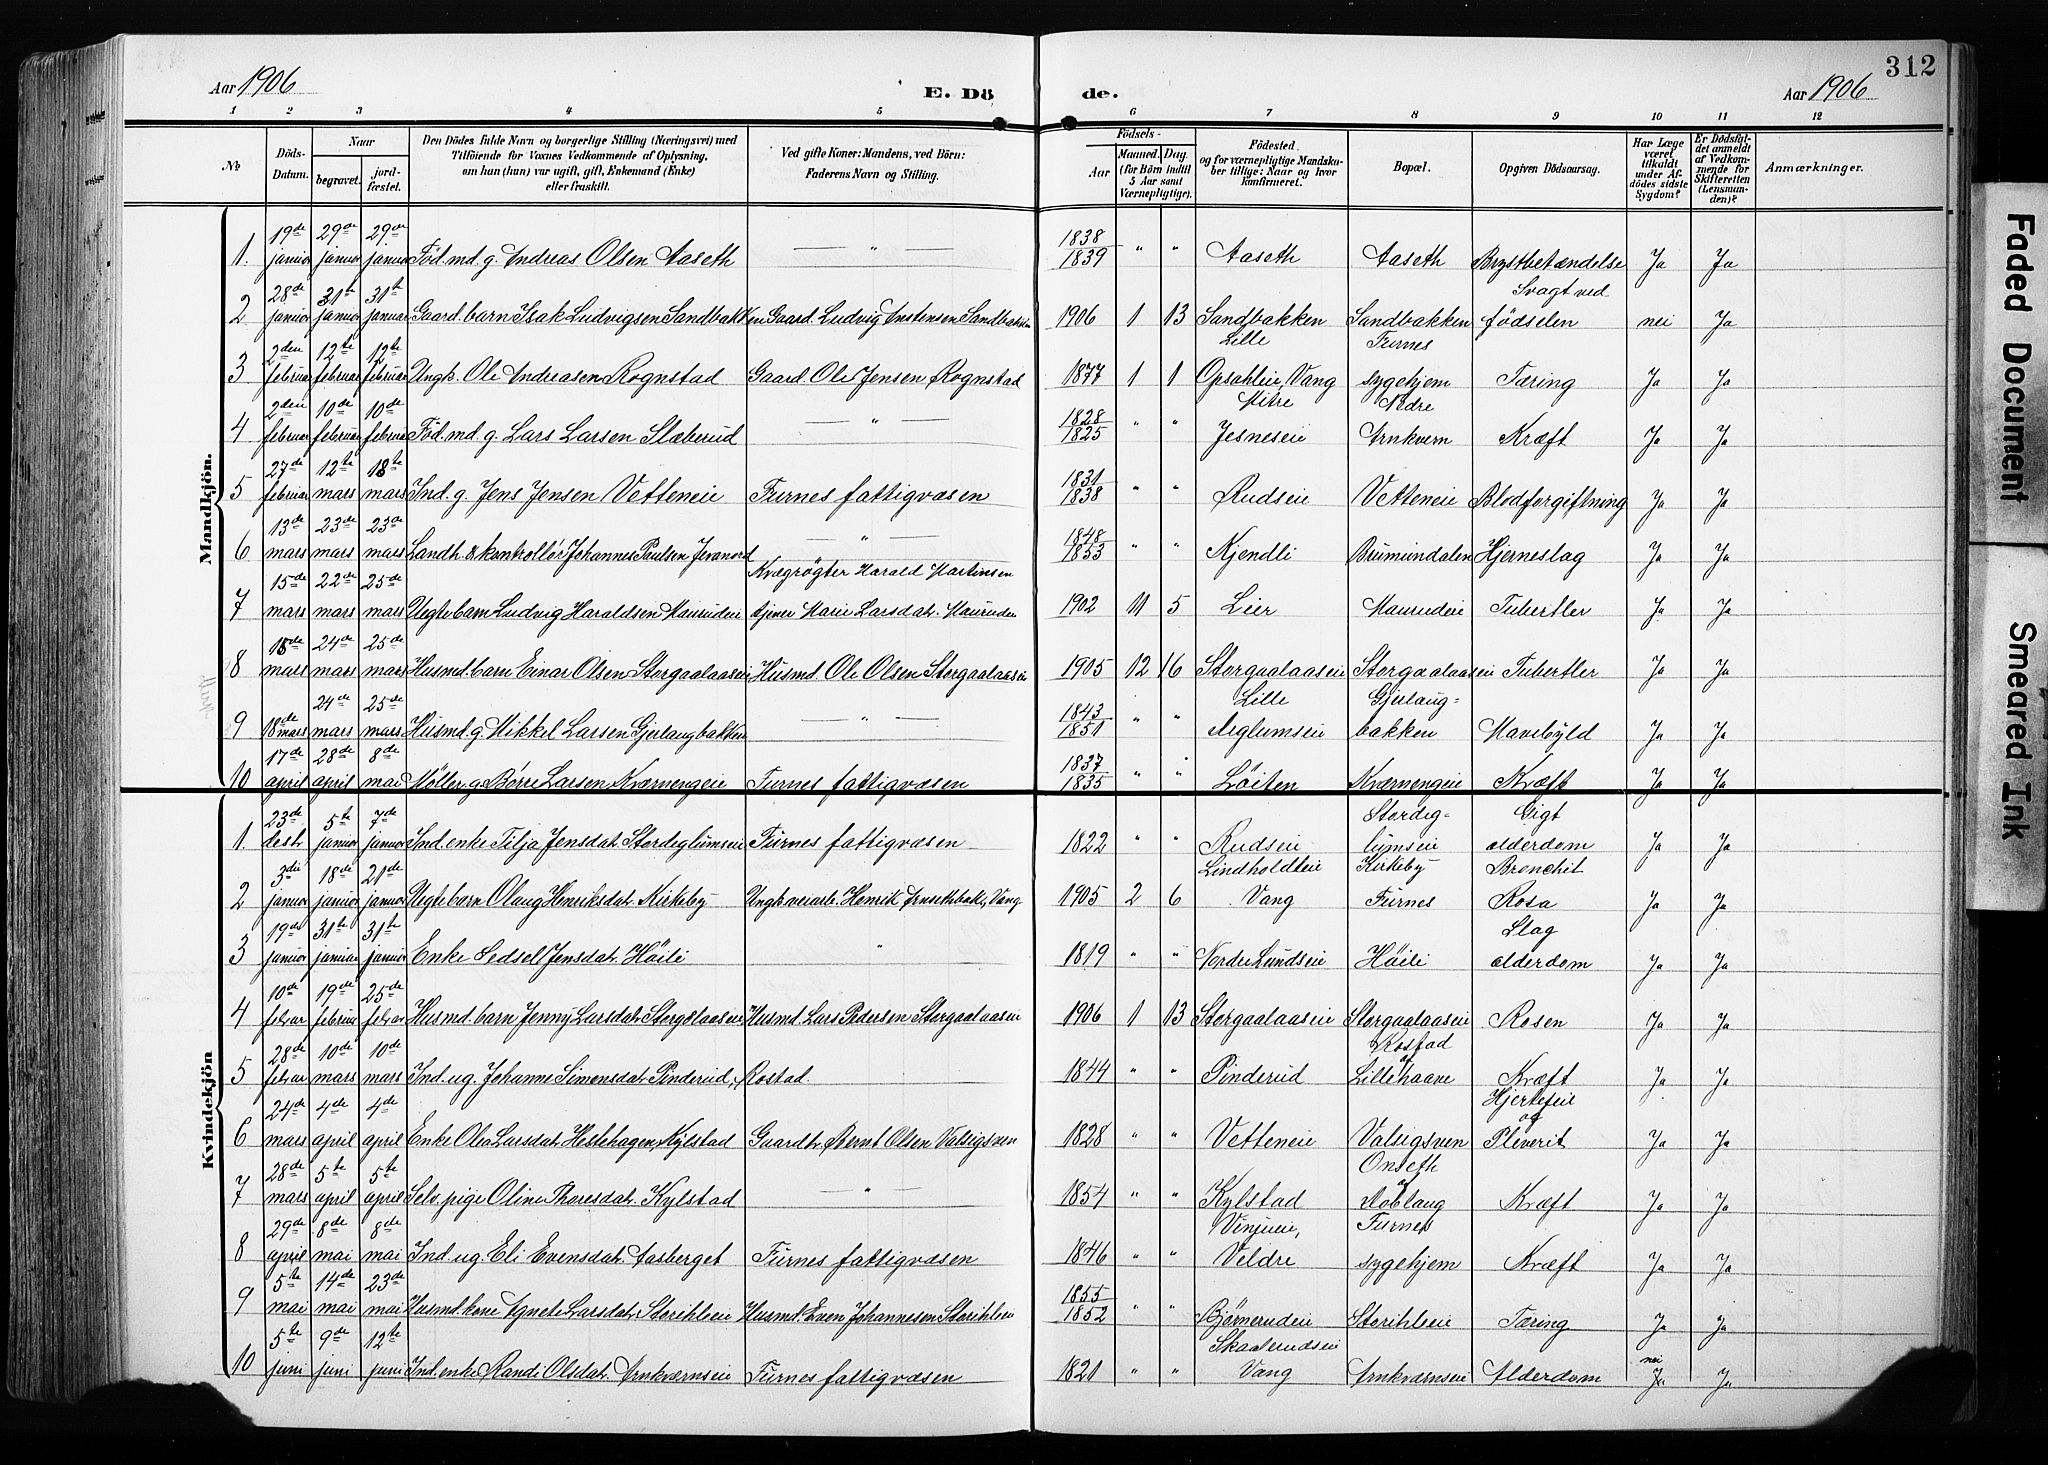 Aar 1906 E. Dö de. Aar 1906 312
1 2 3 4 5 6 7 8 9 10 11 12
No Döds-Datum. Naar begravet. jordfæstet. Den Dödes fulde Navn og borgerlige Stilling (Næringsvei) med Tilföiende for Voxnes Vedkommende af Oplysning, om han (hun) var ugift, gift, Enkemand (Enke) eller fraskilt. Ved gifte Koner: Mandens, ved Börn: Faderens Navn og Stilling. Födsels- Aar Maaned. Dag. (for Börn indtil 5 Aar samt Værnepligtige). Födested. og for værnepligtige Mandskaber tillige: Naar og hvor konfirmeret. Bopæl. Opgiven Dödsaarsag. Har Læge været tilkaldt under Afdödes sidste Sygdom? Er Dödsfaldet anmeldt af Vedkommende for Skifteretten (Lensmanden)? Anmærkninger.
Mandkjön.
1 19de januar 29de januar 29de januar Föd. md. g. Andreas Olsen Aaseth — " — 1838 1839 " " Aaseth Aaseth Brystbetændelse Ja Ja
2 28de januar 31te januar 31te januar Gaard. barn Isak Ludvigsen Sandbakken Gaard. Ludvig Anstensen Sandbakken 1906 1 13 Sandbakken Sandbakken Svagt ved födselen nei Ja
3 2den februar 12te februar 12te februar Ungk. Ole Andreasen Rognstad Gaard Ole Jensen Rognstad 1877 1 1 Lille Opsahleie, Vang Furnes sygehjem Tæring Ja Ja
4 2den februar 10de februar 10de februar Föd. md. g. Lars Larsen Slæberud — " — 1828 1825 " " Mitre Jesneseie Nedre Arnkvern Kræft Ja Ja
5 27de februar 12te mars 18te mars Ind. g. Jens Jensen Vetteneie Furnes fattigvæsen 1831 1838 " " Rudseie Vetteneie Blodforgiftning Ja Ja
6 13de mars 23de mars 23de mars Landh. & kontrollør Johannes Paulsen Jevanord — " — 1848 1853 " " Kjendli Brumundalen Hjerneslag Ja Ja
7 15de mars 22de mars 25de mars Uegte barn Ludvig Haraldsen Maurudeie Kvægrøgter Harald Martinsen tjener Marie Larsdat. Mauruden 1902 11 5 Lier Maurudeie Tubertler Ja Ja
8 18de mars 24de mars 25de mars Husmd. barn Einar Olsen Storgaalaaseie Husmd. Ole Olsen Storgaalaaseie 1905 12 16 Storgaalaaseie Storgaalaaseie Tubertler Ja Ja
9 18de mars 24de mars 25de mars Husmd. g. Mikkel Larsen Gjerlaugbakken — " — 1843 1851 " " Lille Aeglumseie Gjerlaug-bakken Mavebyld Ja Ja
10 17de april 28de april 8de mai Møller. g. Børre Larsen Kværnengeie Furnes fattigvæsen 1837 1835 " " Löiten Kværnengeie Kræft Ja Ja
Kvindekjön
1 23de desbr 5te januar 7de januar Ind. enke Tilja Jensdat. Stordeglumseie Furnes fattigvæsen 1822 " " Rudseie Stordeg-lumseie Gigt alderdom Ja Ja
2 3die januar 18de januar 21de januar Uegte barn Olaug Henriksdat. Kirkeby Ungk veiarb. Henrik Arnsethbak., Vang 1905 2 6 Lindholdteie Vang Kirkeby Furnes Bronchit Rosa Ja Ja
3 19de januar 31te januar 31te januar Enke Sedsel Jensdat. Höili " 1819 " " Nordre Lundseie Höili Slag alderdom Ja Ja
4 10de febvar 19de februar 25de febvar Husmd. barn Jenny Larsdat. Storgalaaseie Husmd. Lars Pedersen Storgaalaaseie 1906 1 13 Storgaalaaseie Storgaalaaseie Rosen Ja Ja
5 28de febvar 10de mars 10de mars Ind. ug. Johanne Simensdat. Pinderud, Rostad. 1844 " " Pinderud Rostad Lillehaave Kræft Ja Ja
6 24de mars 4de april 4de april Enke Olea Larsdat. Hestehagen, Kylstad Gaardbr. Bernt Olsen Valsigsven 1828 " " Vetteneie Valsigsven Hjertefeil og Pleverit Ja Ja
7 28de mars 5te april 5te april Selv. pige Oline Thoresdat. Kylstad — " — 1854 " " Kylstad Onseth Aoblaug Kræft Ja Ja
8 29de april 8de mai 8de mai Ind. ug. Eli Evensdat. Aasberget Furnes fattigvæsen 1846 " " Vinjueie, Veldre Furnes sygehjem Kræft Ja Ja
9 5te mai 14de mai 23de mai Husmd. kone Agnete Larsdat. Storihleie Husmd. Even Johannesen Storihleie 1855 1852 " " Bjørnerudeie Storihleie Tæring Ja Ja
10 5te juni 9de juni 12te juni Ind. enke Randi Olsdat. Arnkværnseie Furnes fattigvæsen 1821 " " Skaaterudseie Vang Arnkværnseie Alderdom nei Ja Ja
Faded Document
Smeared Ink